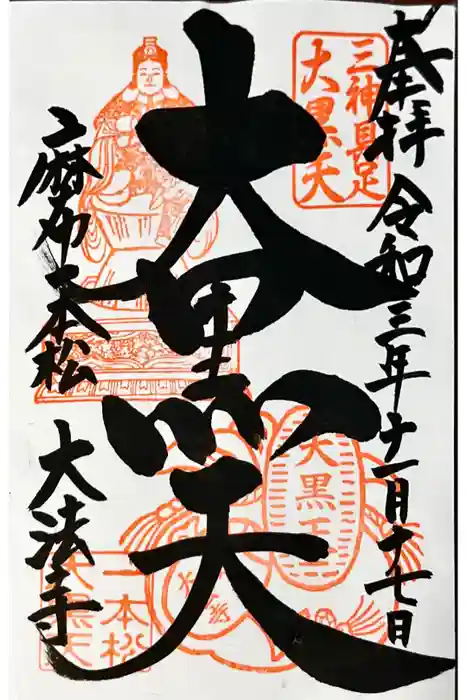 奉拝 令和三年十一月十七日
三神具足
大黒天
大黒天
大黒天
麻布一本松
大法寺
一本松
大黒天